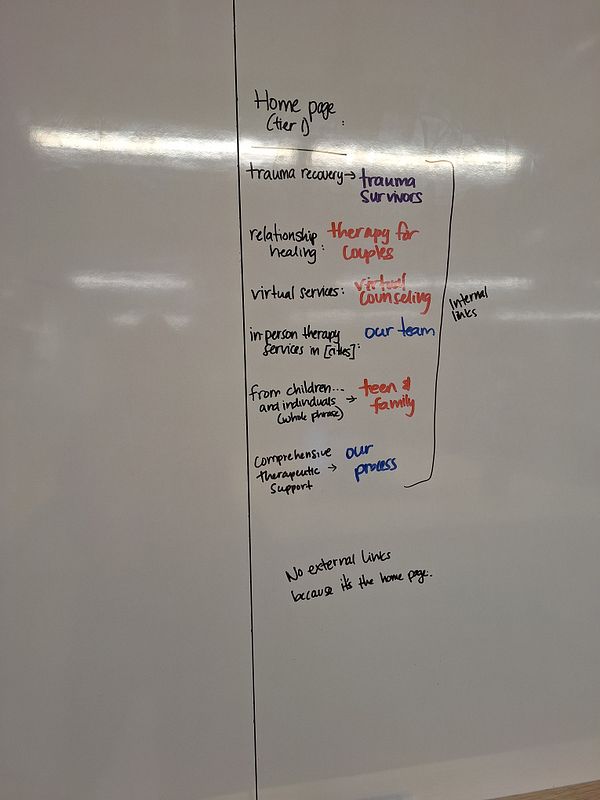 Home page
(tier 1) :
trauma recovery → trauma
survivors
relationship
healing :
therapy for
couples
virtual services: virtual
counseling
in-person therapy
services in [cities]:
our team
from children...
and individuals
(whole phrase)
→ teen &
family
comprehensive
therapeutic
support
→ our
process
Internal
links
No external links
because it's the home page.